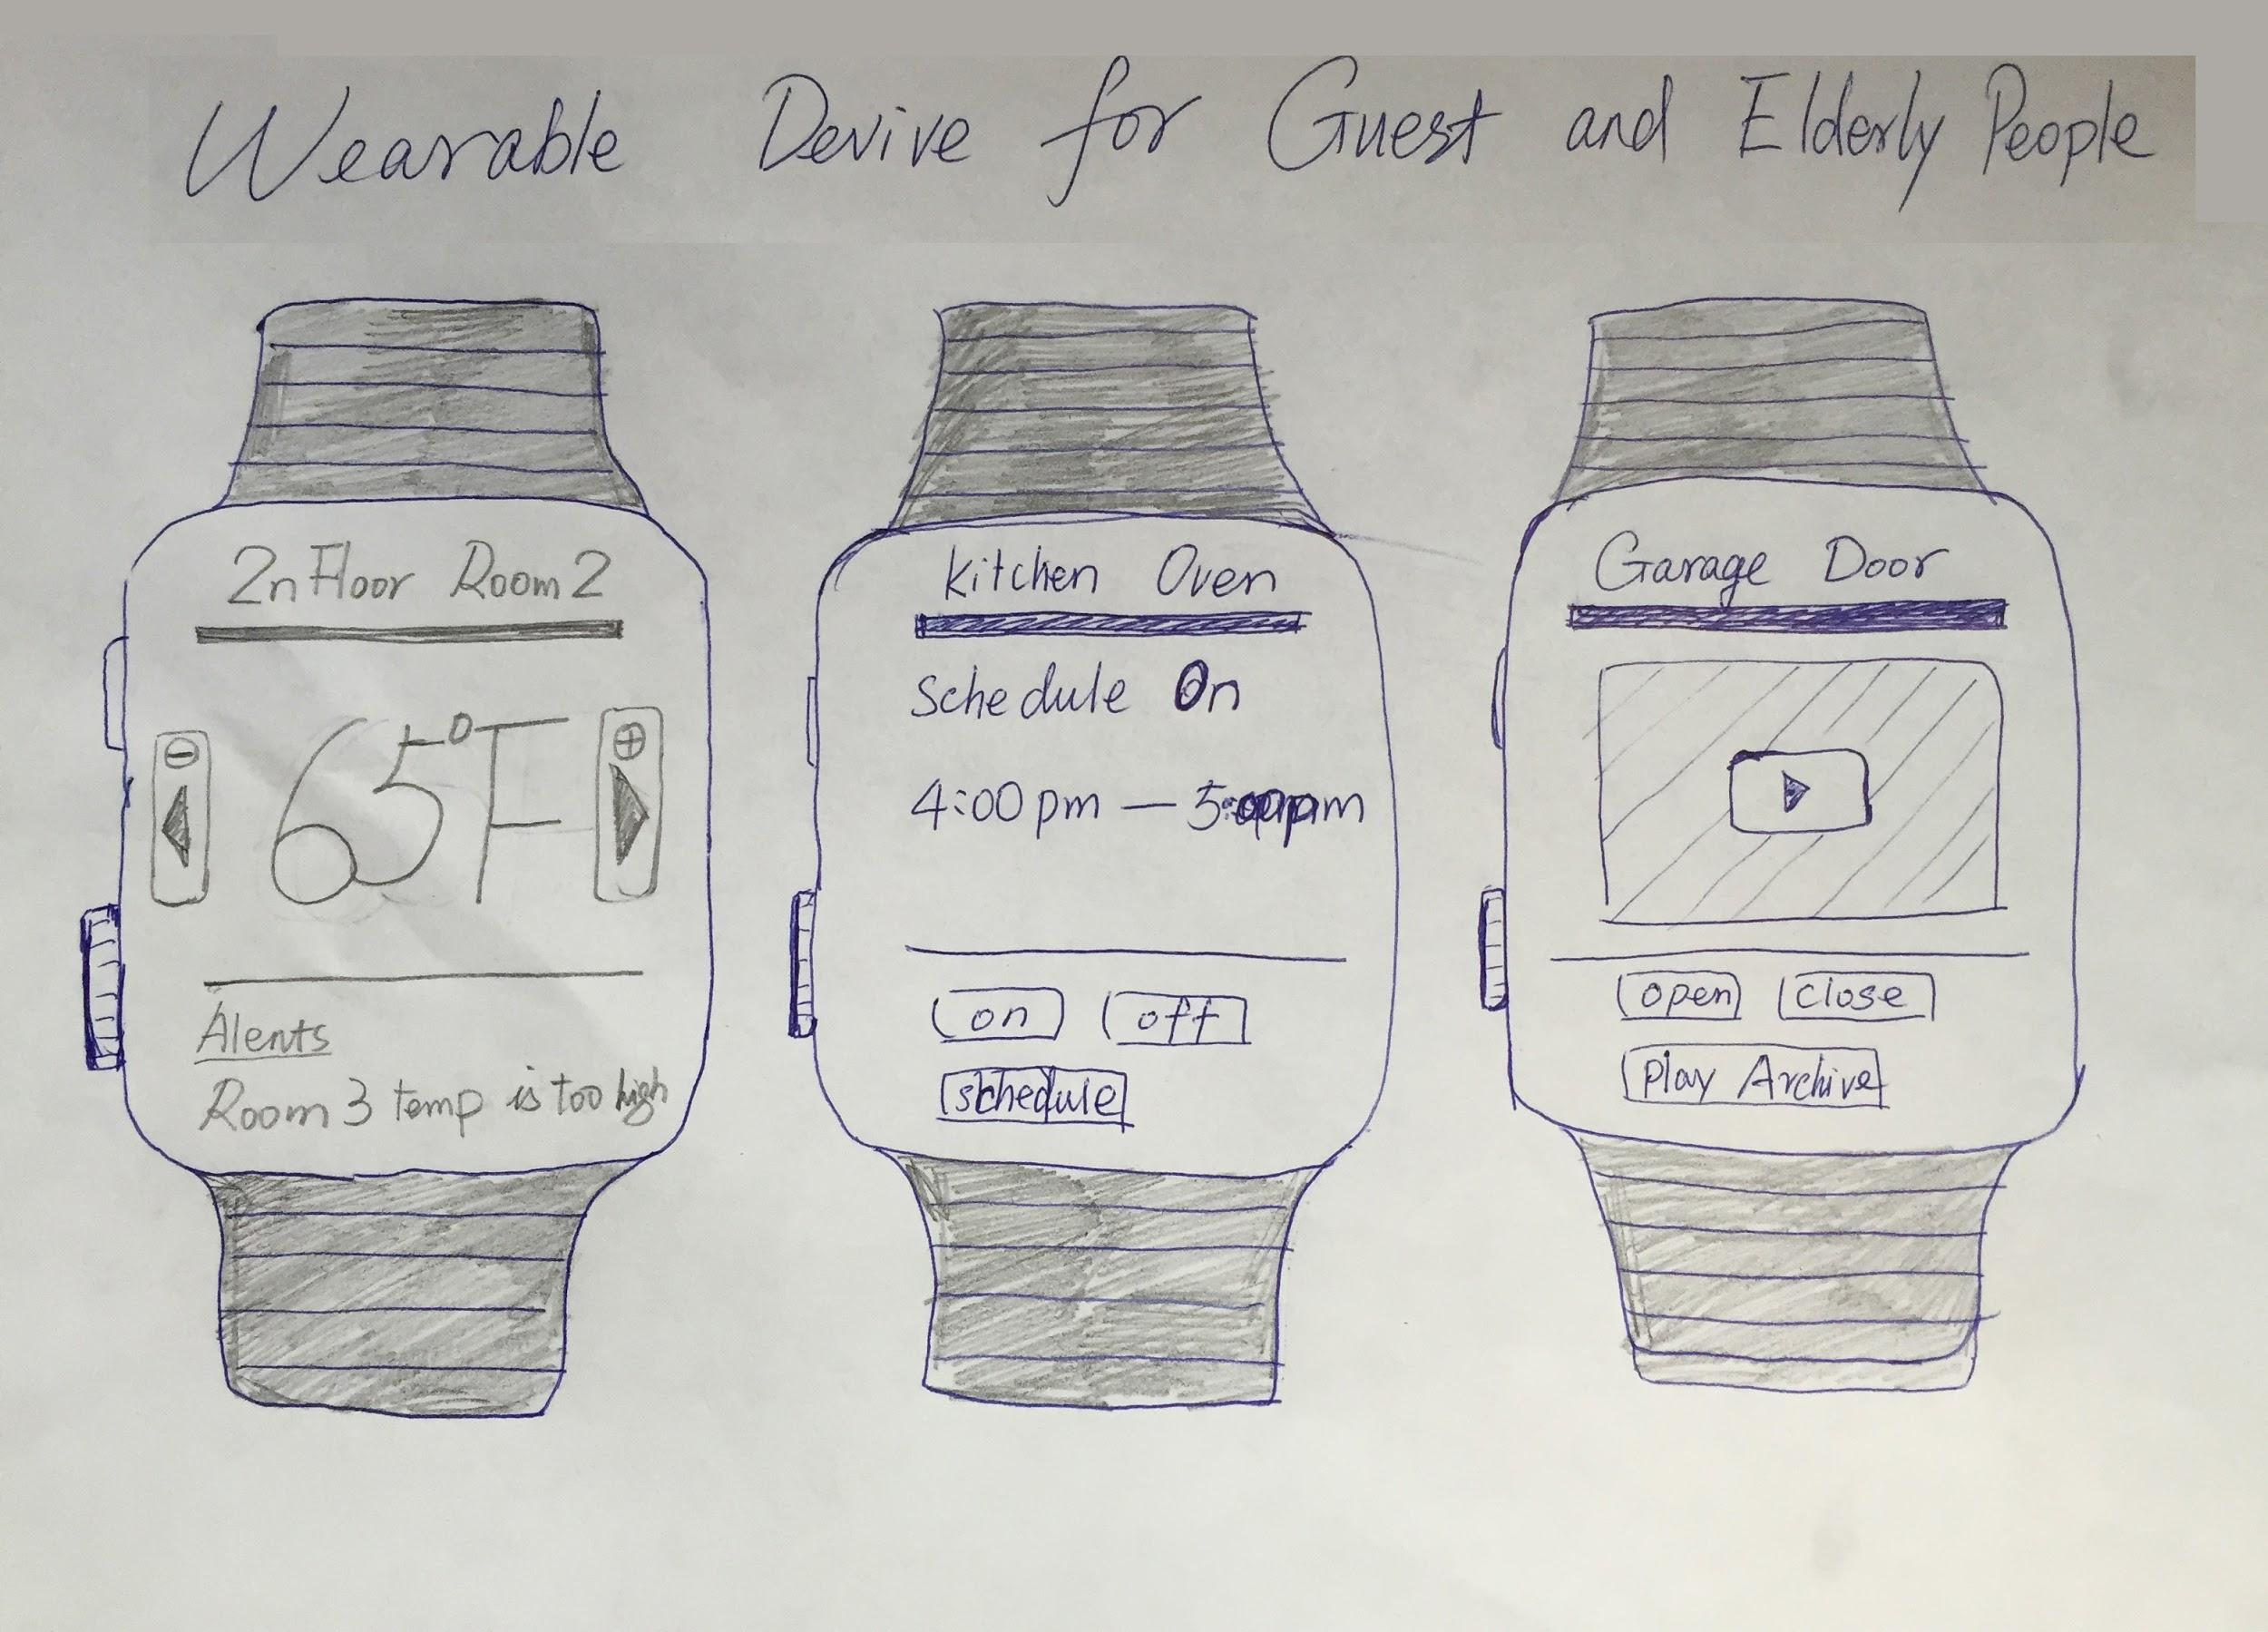 Wearable Devive for Guest and Elderly People
2n Floor Room 2
65°F
Alents
Room 3 temp is too high
Kitchen Oven
Schedule On
4:00 pm — 5:00pm
on off
schedule
Garage Door
open close
Play Archive